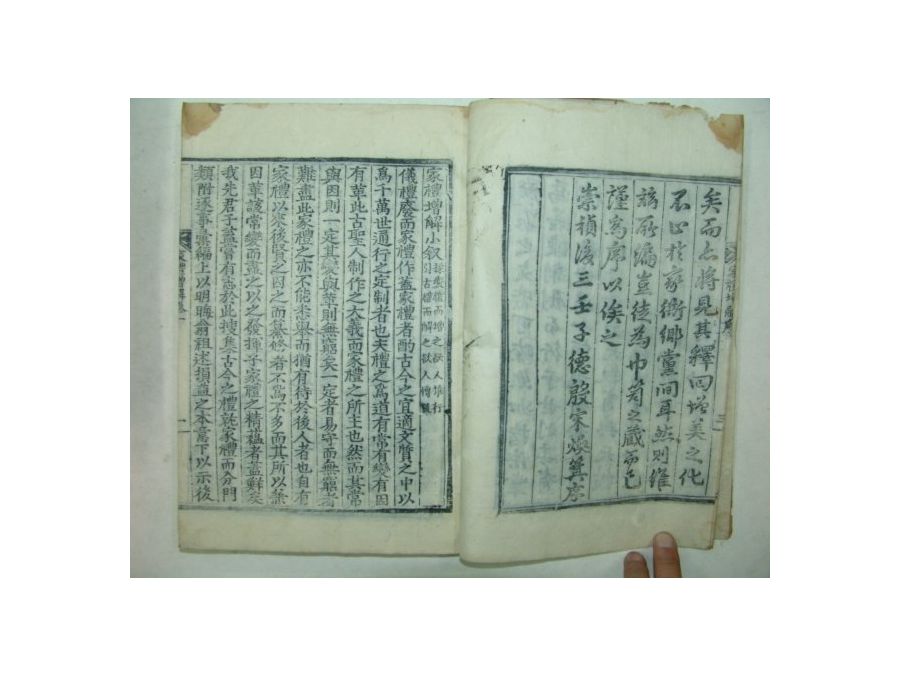 矣而亦將見其釋回增美之化
不止於家術鄉黨間耳然則維
玆所編豈徒爲巾笥之藏而已
謹爲序以俟之
崇禎後三壬子德殷宋煥箕序
家禮增解小叙
儀禮廢而家禮作蓋家禮者酌古今之宜適文質之中以
爲千萬世通行之定制者也夫禮之爲道有常有變有因
有革此古聖人制作之大義而家禮之所主也然而其常
與因則一定其變與革則無窮矣一定者易守而無窮者
難盡此家禮之亦不能悉擧而猶有待於後人者也自有
家禮以來後賢之因之而纂修者不爲不多而其所以兼
因革該常變而盡之以之發揮子家禮之精蘊者蓋鮮矣
我先君子蓋嘗有意於此搜集古今之禮就家禮而分門
類附逐事彙編上以明晦翁祖述損益之本意下以示後